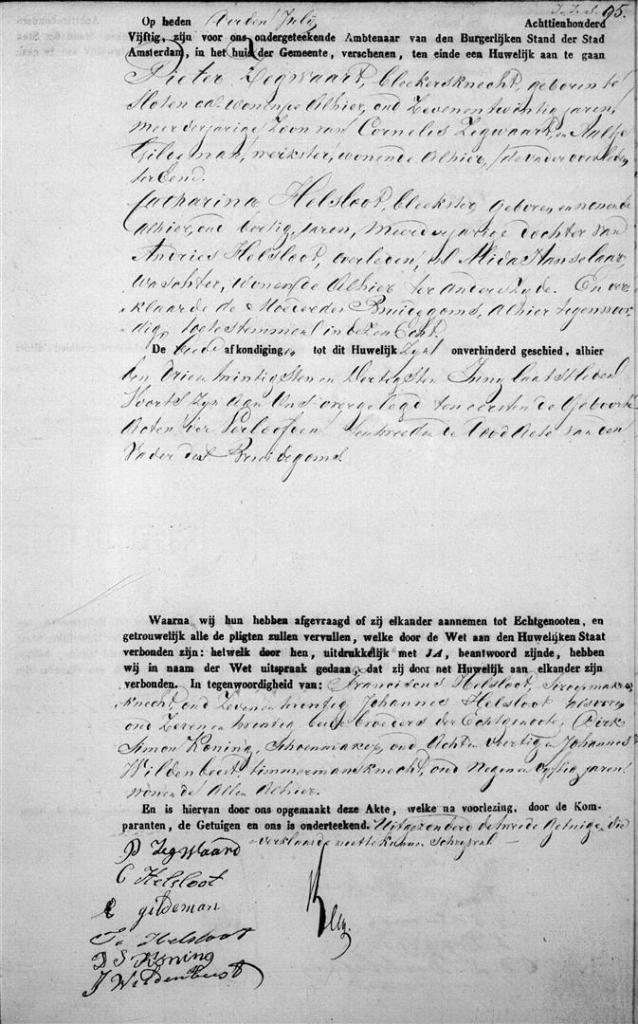 95.
Op heden Derden July Achttienhonderd
Vijftig, zijn voor ons ondergeteekende Ambtenaar van den Burgerlijken Stand der Stad
Amsterdam, in het huis der Gemeente, verschenen, ten einde een Huwelijk aan te gaan
Pieter Zegwaart, bleekersknecht, geboren te
Sloten en wonende Alhier, oud Zevenentwintig jaren,
meerderjarige Zoon van Cornelis Zegwaart, en Aaltje
Gildeman, werkster, wonende Alhier, de vader overleden
ter Eenre.
Catharina Helsloot, bleekster, geboren en wonende
alhier, oud dertig jaren, meerderjarige dochter van
Andries Helsloot, overleden, en Alida Hanselaar,
waschster, wonende Alhier ter andere Zyde. En ver-
klaarde de Moeder des Bruidegoms, Alhier tegenwoor-
dig, toetestemmen in dezen Echt.
De beide afkondigingen tot dit Huwelijk Zyn onverhinderd geschied, alhier
den Drieentwintigsten en Dertigsten Juny laatstleden
Voorts Zyn Aan Ons overgelegd ten eersten de Geboorte
Acten der Verloofden tentweeden de dood Acte van den
Vader des Bruidegoms
Waarna wij hun hebben afgevraagd of zij elkander aannemen tot Echtgenooten, en
getrouwelijk alle de pligten zullen vervullen, welke door de Wet aan den Huwelijken Staat
verbonden zijn: hetwelk door hen, uitdrukkelijk met JA, beantwoord zijnde, hebben
wij in naam der Wet uitspraak gedaan, dat zij door het Huwelijk aan elkander zijn
verbonden. In tegenwoordigheid van: Franciscus Helsloot,
knecht, oud Zevenentwintig Johannes Helsloot
oud Zevenentwintig beide broeders der Echtgenoote, Dirk
Simon Koning, Schoenmaker, oud Achtenveertig en Johannes
Wildenbeest, timmermansknecht, oud Negenenvyftig jaren
wonende Allen Alhier.
En is hiervan door ons opgemaakt deze Akte, welke na voorlezing, door de Kom-
paranten, de Getuigen en ons is onderteekend. Uitgezonderd de tweede Getuige, die
verklaarde niet te kunnen Schryven
P Zegwaard
C Helsloot
gildeman
Helsloot
D S Koning
J Wildenbeest